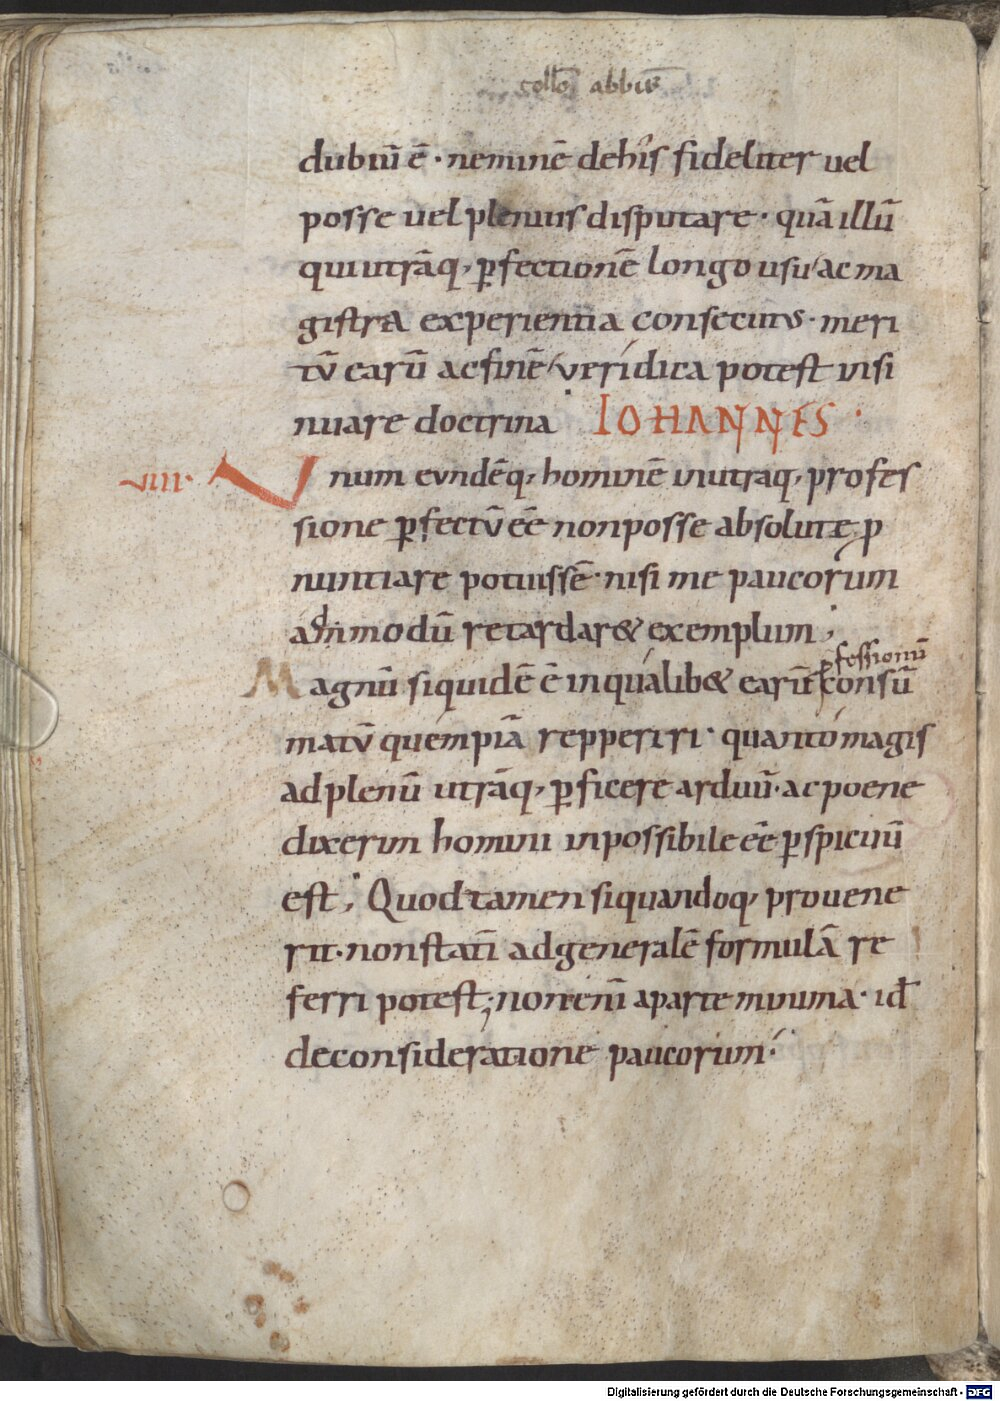 collō abbīs
dubiū ē · neminē dehis fideliter uel
posse uel plenius disputare · quā illū
qui utrāq, ꝑfectionē longo usu ac ma
gistra experientia consecutus · meri
tū earū ac finē ueridica potest insi
nuare doctrina IOHANNES ·
VIIII· Vnum eundēq, hominē inutraq, profes
sione ꝑfectū eē nonposse absolute ꝓ
nuntiare potuissē · nisi me paucorum
admodū retardar& exemplum ;
fessionū
Magnū siquidē ē inqualib& earū ꝓ consū
matū quempiā repperiri · quanto magis
adplenū utrāq, ꝑficere arduū · ac poene
dixerim homini inpossibile eē ꝑspicuū
est ; Quod tamen siquandoq, prouene
rit · non statī adgeneralē formulā re
ferri potest ; non enī aparte minima · id
deconsideratione paucorum ·
Digitalisierung gefördert durch die Deutsche Forschungsgemeinschaft - DFG